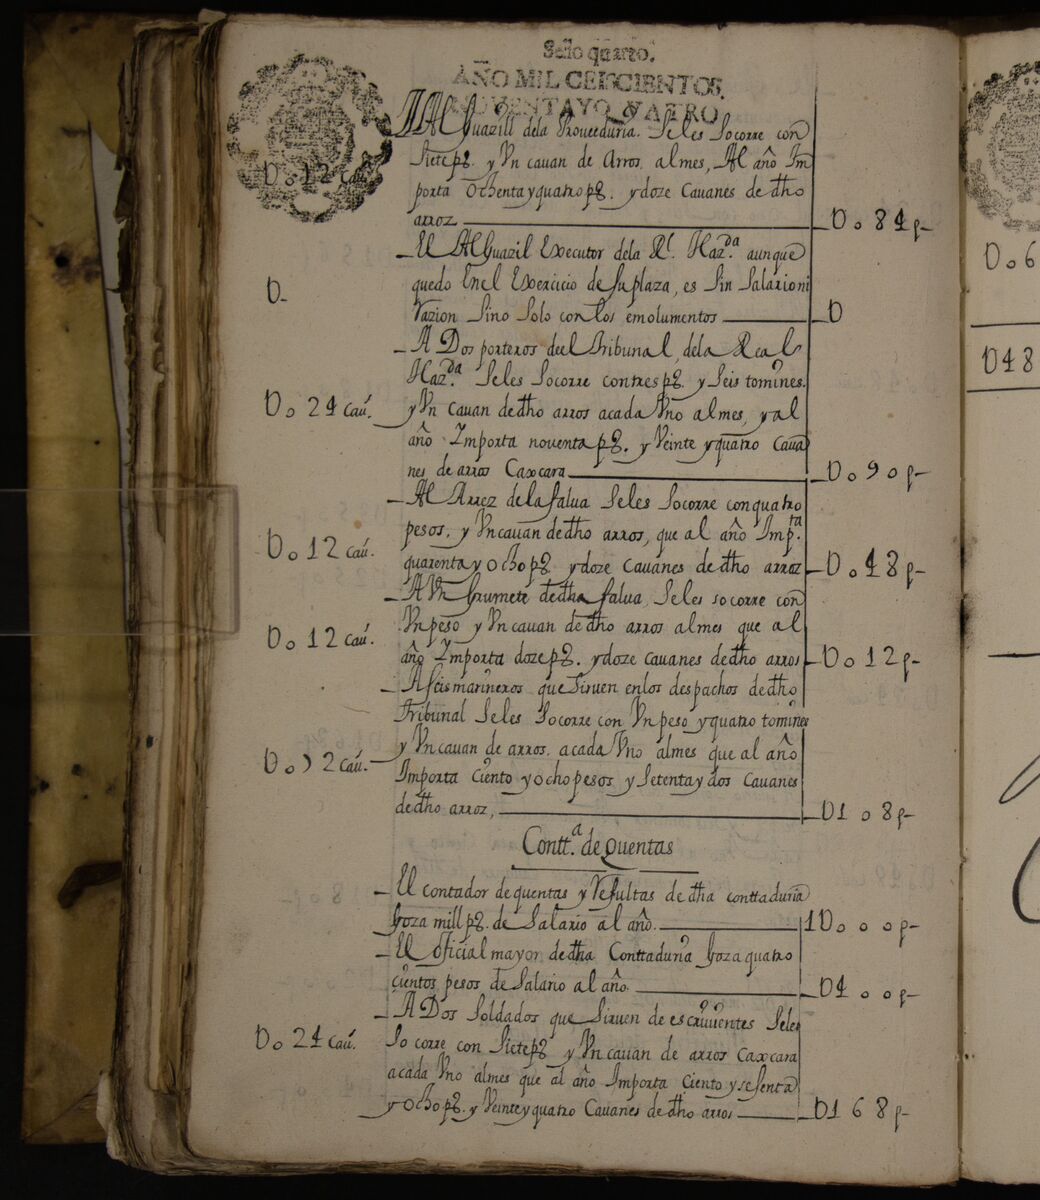 Sello quarto.
AÑO MIL CEISCIENTOS.
NOVENTA YQVATRO
Al Guazill dela Proveeduria. Seles Socorre con
D o 12 cau.
Siete pº. y Vn cauan de Arros. al mes, Al año Im
porta ochenta y quatro pº. y doze Cauanes de dho
arroz D o 84 p
El Al Guazil Executor dela Rl. Hazda aunque
quedo En el Exercicio de Su plaza, es Sin Salario ni
D
Razion Sino Solo con los emolumentos D
A Dos porteros deel Tribunal, dela Real
Hazda. Seles Socorre contres pº. y Seis tomines.
D o 24 cau. y Vn cauan de dho arros acada Vno al mes, y al
año Importa noventa pº. y Veinte y quatro Caua
nes de arros Caxcara D o 9 o p
Al Arrez de la falua Seles Socorre con quatro
pesos. y Vn cauan de dho arros, que al año Impta.
D o 12 cau. quarenta y ocho pº y doze Cauanes de dho arroz D o 48 p
A Vn Grumete de dha falua, Seles socorre con
D o 12 cau. Vn peso y Vn cauan de dho arros al mes que al
año Importa doze pº. y doze cauanes de dho arros D o 12 p
A Seis marineros que Siruen en los despachos de dho
Tribunal Seles Socorre con Vn peso y quatro tomines
y Vn cauan de arros. acada Vno al mes que al año
D o 72 cau. Importa ciento y ocho pesos y Setenta y dos Cauanes
de dho arroz, D1 o 8 p
Contta. de Quentas
El contador de quentas y Resultas de dha conttaduria
Goza mill pº. de Salario al año. 1D o o o p
El oficial mayor de dha Conttaduria Goza quatro
cientos pesos de Salario al año. D4 o o p
A Dos Soldados que Siruen de escriuientes Seles
D o 24 cau. So corre con Siete pº y Vn cauan de arros Caxcara
acada Vno al mes que al año Importa Ciento y sesenta
y ocho pº. y Veinte y quatro Cauanes de dho arros D1 6 8 p
D o 6
D48